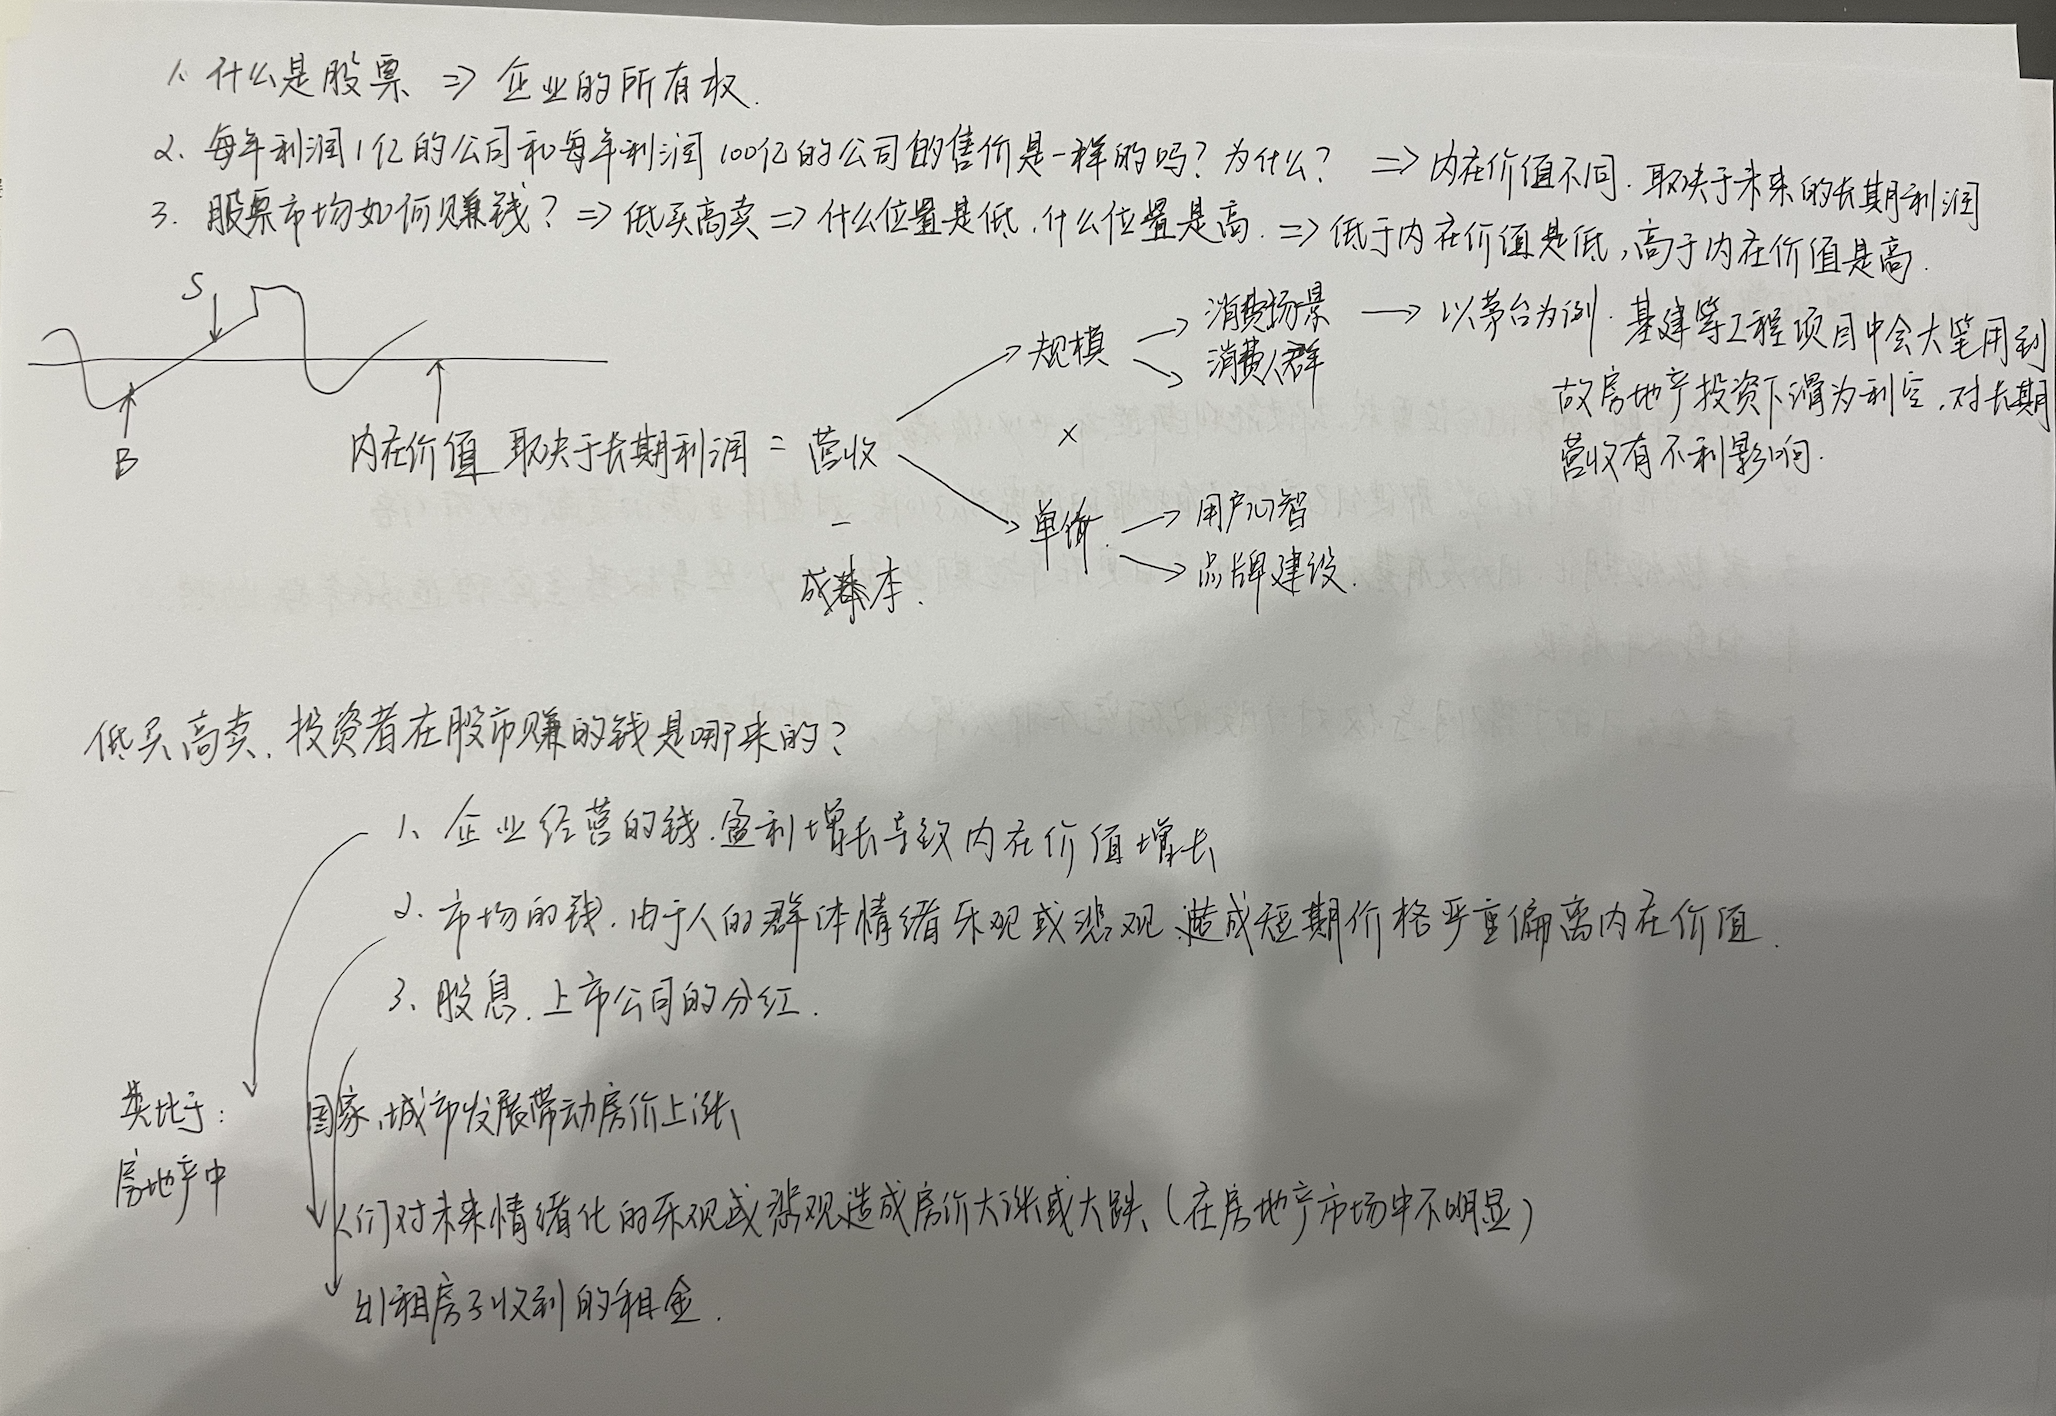 1、什么是股票 => 企业的所有权.
2、每年利润1亿的公司和每年利润100亿的公司的售价是一样的吗？为什么？ => 内在价值不同.取决于未来的长期利润
3. 股票市场如何赚钱？=> 低买高卖 => 什么位置是低,什么位置是高. => 低于内在价值是低,高于内在价值是高.
S
B
内在价值 取决于长期利润 = 营收
-
成本.
规模
×
单价.
消费场景
消费人群
用户心智
品牌建设.
以茅台为例.基建等工程项目中会大笔用到
故房地产投资下滑为利空.对长期
营收有不利影响.
低买高卖.投资者在股市赚的钱是哪来的？
1、企业经营的钱.盈利增长导致内在价值增长
2.市场的钱.由于人的群体情绪乐观或悲观造成短期价格严重偏离内在价值.
3、股息.上市公司的分红.
类比于：
房地产中
国家、城市发展带动房价上涨
人们对未来情绪化的乐观或悲观造成房价大涨或大跌、(在房地产市场中不明显)
出租房子收到的租金.